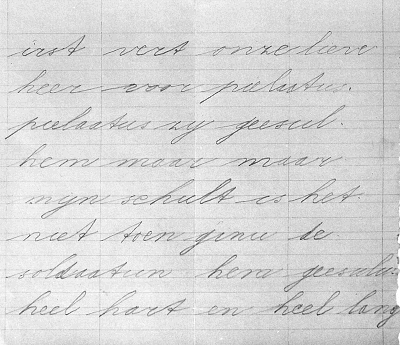 irst vert onze lieve
heer voor pielaatus.
pielaatus zy geesul.
hem maar maar
myn schult is het.
niet toen ginu de
soldaatin hem geesulu
heel hart en heel lang